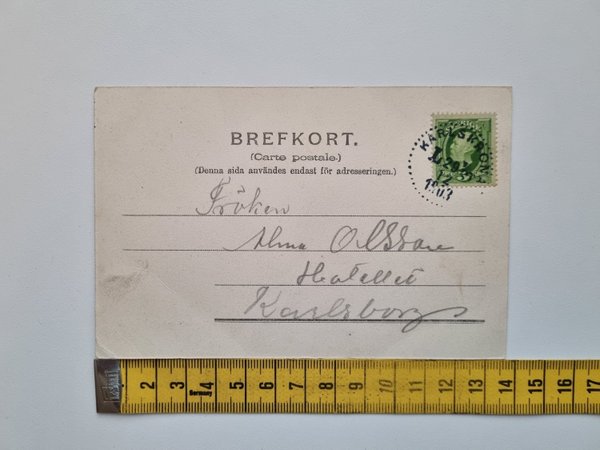 BREFKORT.
(Carte postale.)
(Denna sida användes endast för adresseringen.)
KARLSKRONA
1903
Fröken
Alma Olsson
Hotellet
Karlsborg
2 3 4 5 6 7 8 9 10 11 12 13 14 15 16 17
Germany